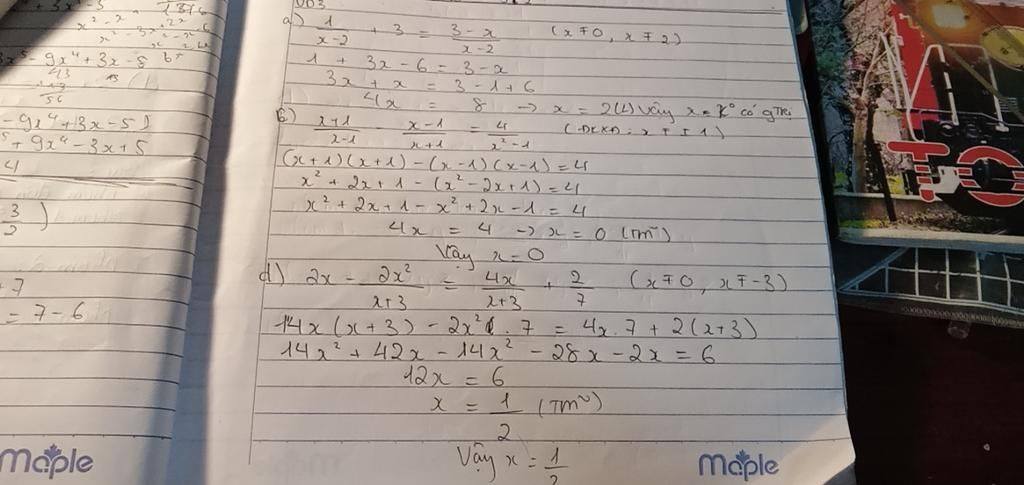 a) 1/(x-2) + 3 = (3-x)/(x-2) (x≠0, x≠2)
1 + 3x - 6 = 3 - x
3x + x = 3 - 1 + 6
4x = 8 → x = 2(L) Vậy x = K° có gTRi
b) (x+1)/(x-1) - (x-1)/(x+1) = 4/(x²-1) (ĐKXĐ: x ≠ ± 1)
(x+1)(x+1) - (x-1)(x-1) = 4
x² + 2x + 1 - (x² - 2x + 1) = 4
x² + 2x + 1 - x² + 2x - 1 = 4
4x = 4 → x = 0 (TM~)
Vậy x = 0
d) 2x - 2x²/(x+3) = 4x/(x+3) + 2/7 (x≠0, x≠-3)
14x(x+3) - 2x² . 7 = 4x.7 + 2(x+3)
14x² + 42x - 14x² - 28x - 2x = 6
12x = 6
x = 1/2 (TM~)
Vậy x = 1/2
Maple
- 9x⁴ + 3x - 5)
+ 9x⁴ - 3x + 5
4
3/2)
+7
= 7 - 6
Maple